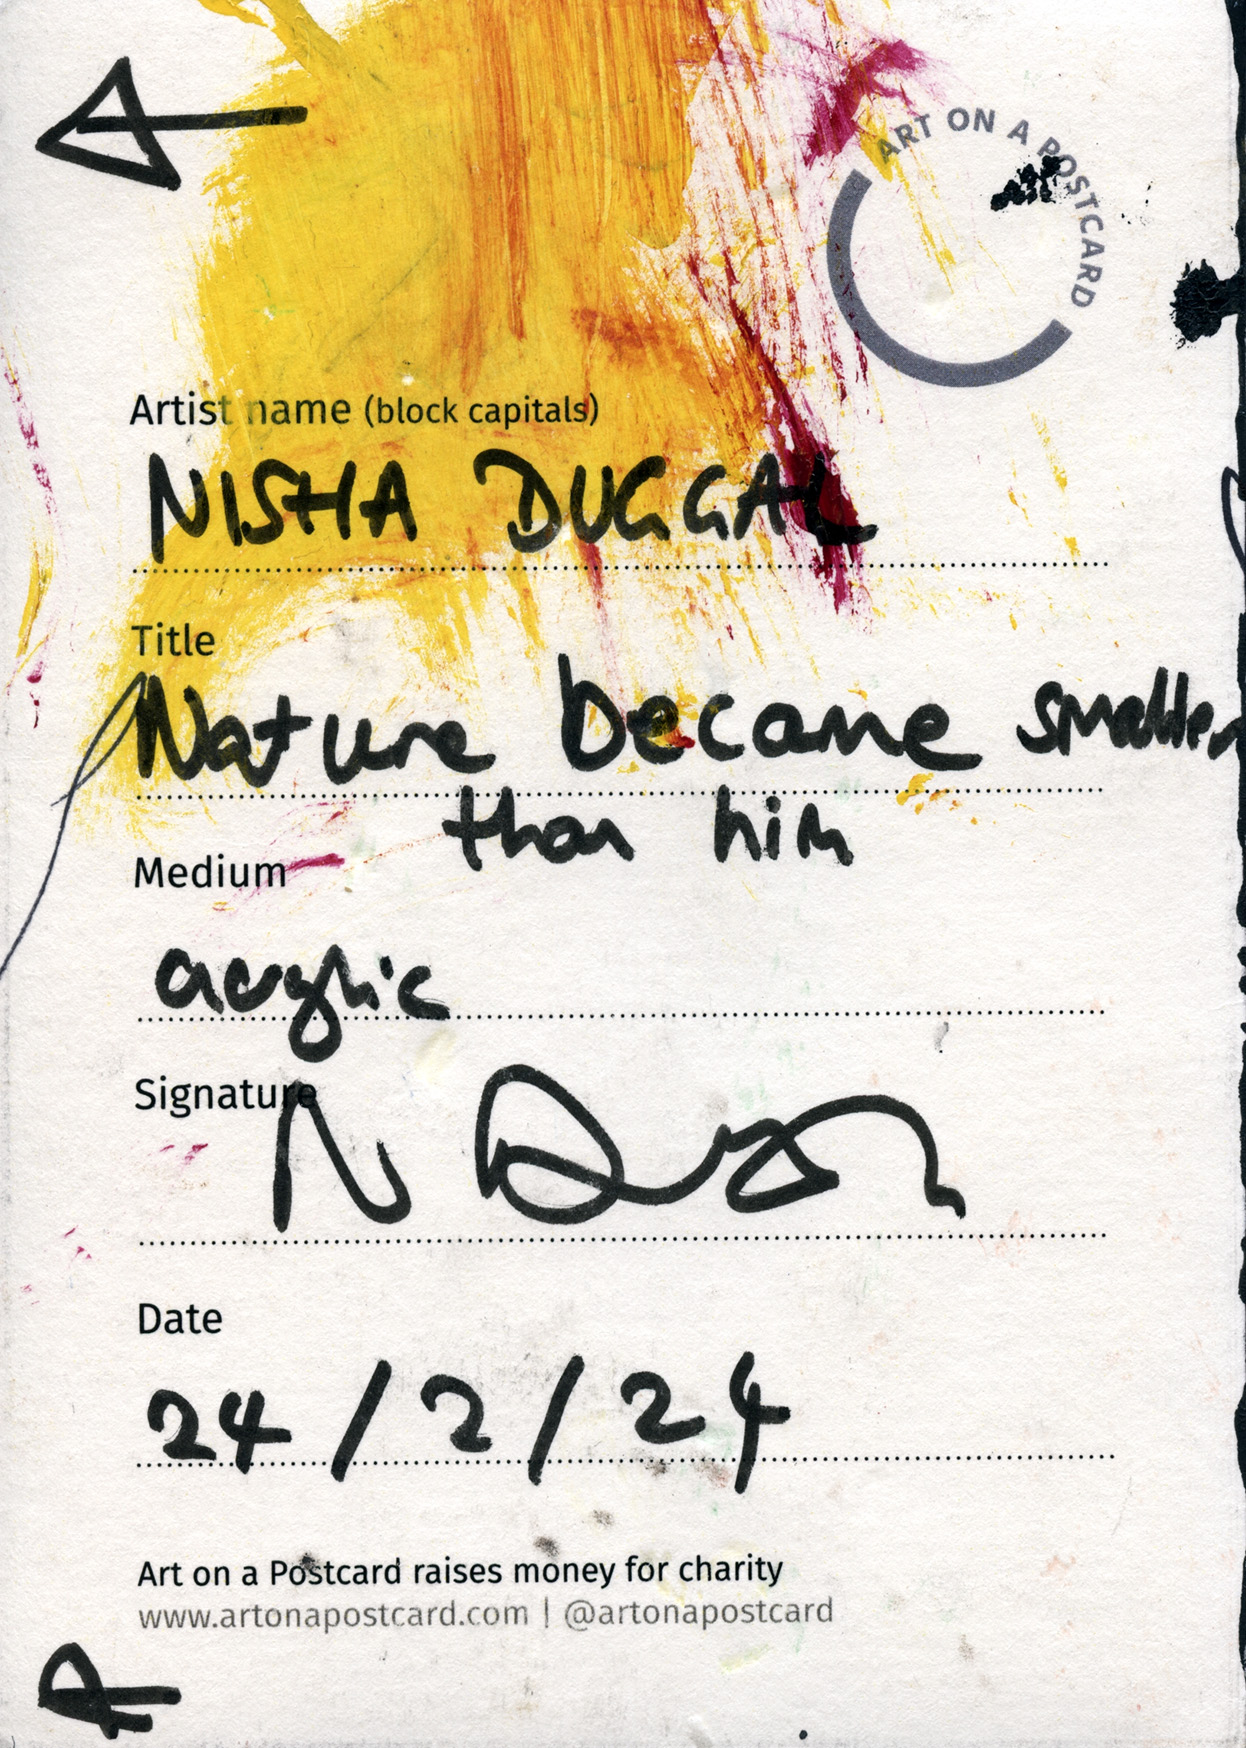 ART ON A POSTCARD
Artist name (block capitals)
NISHA DUGGAL
Title
Nature became smaller
than him
Medium
acrylic
Signature
Date
24/2/24
Art on a Postcard raises money for charity
www.artonapostcard.com | @artonapostcard